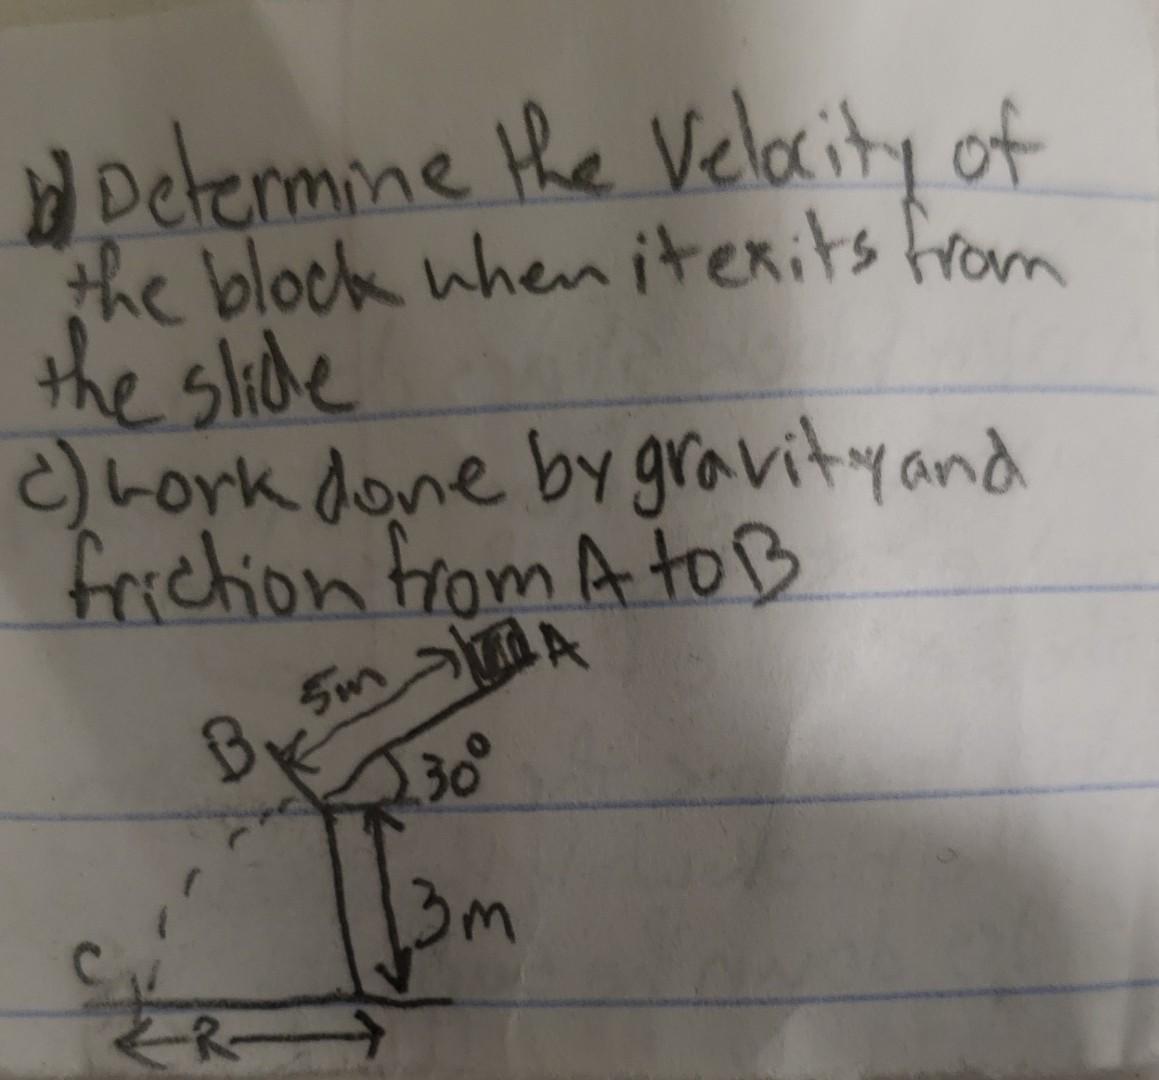 b) Determine the Velocity of
the block when it exits from
the slide
c) Work done by gravity and
friction from A to B
5m A
B
30°
3m
C
R